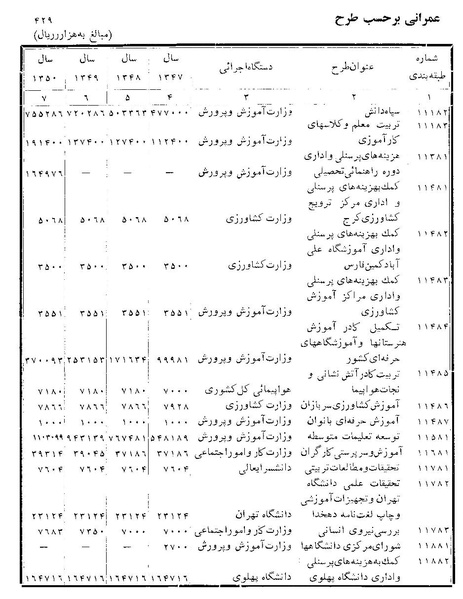 عمرانی برحسب طرح ۴۲۹
(مبالغ به‌هزار ریال)
شماره طبقه‌بندی عنوان‌طرح دستگاه‌اجرائی سال ۱۳۴۷ سال ۱۳۴۸ سال ۱۳۴۹ سال ۱۳۵۰
۱ ۲ ۳ ۴ ۵ ۶ ۷
۱۱۱۸۲ سپاه‌دانش وزارت‌آموزش وپرورش ۴۷۷۰۰۰ ۵۰۳۳۶۳ ۷۲۰۲۸۶ ۷۵۵۲۸۶
۱۱۱۸۳ تربیت معلم وکلاسهای
کارآموزی وزارت‌آموزش وپرورش ۱۱۲۴۰۰ ۱۲۷۴۰۰ ۱۳۷۴۰۰ ۱۹۱۴۰۰
۱۱۳۸۱ هزینه‌های‌پرسنلی واداری
دوره راهنمائی‌تحصیلی وزارت‌آموزش وپرورش — — — ۱۶۴۹۷۶
۱۱۴۸۱ کمک‌بهزینه‌های پرسنلی
و اداری مرکز ترویج
کشاورزی‌کرج وزارت کشاورزی ۵۰۶۸ ۵۰۶۸ ۵۰۶۸ ۵۰۶۸
۱۱۴۸۲ کمک بهزینه‌های پرسنلی
واداری آموزشگاه علی
آبادکمین‌فارس وزارت‌کشاورزی ۳۵۰۰ ۳۵۰۰ ۳۵۰۰ ۳۵۰۰
۱۱۴۸۳ کمک بهزینه‌های پرسنلی
واداری مراکز آموزش
کشاورزی وزارت‌آموزش وپرورش ۳۵۵۱ ۳۵۵۱ ۳۵۵۱ ۳۵۵۱
۱۱۴۸۴ تکمیلی کادر آموزش
هنرستانها وآموزشگاههای
حرفه‌ای‌کشور وزارت‌آموزش وپرورش ۹۹۹۸۱ ۱۷۱۶۳۴ ۲۵۳۱۵۳ ۳۷۰۰۹۳
۱۱۴۸۵ تربیت‌کادرآتش نشانی و
نجات‌هواپیما هواپیمائی کل‌کشوری ۷۰۰۰ ۷۱۸۰ ۷۱۸۰ ۷۱۸۰
۱۱۴۸۶ آموزش‌کشاورزی‌سربازان وزارت کشاورزی ۷۹۲۸ ۷۸۶۶ ۷۸۶۶ ۷۸۶۶
۱۱۴۸۷ آموزش حرفه‌ای بانوان وزارت‌آموزش وپرورش ۱۰۰۰ ۱۰۰۰ ۱۰۰۰ ۱۰۰۰
۱۱۵۸۱ توسعه تعلیمات متوسطه وزارت‌آموزش وپرورش ۵۴۸۱۸۹ ۷۶۷۴۸۱ ۹۴۳۱۳۹
۱۱۶۸۱ آموزش‌وسرپرستی‌کارگران وزارت‌کار واموراجتماعی ۳۷۱۸۶ ۳۷۱۸۶ ۳۹۰۴۵ ۳۹۳۱۴
۱۱۷۸۱ تحقیقات‌ومطالعات‌تربیتی دانشسرایعالی ۷۶۰۴ ۷۶۰۴ ۷۶۰۴ ۷۶۰۴
۱۱۷۸۲ تحقیقات علمی دانشگاه
تهران وتجهیزات‌آموزشی
وچاپ لغت‌نامه دهخدا دانشگاه تهران ۲۳۱۲۴ ۲۳۱۲۴ ۲۳۱۲۴ ۲۳۱۲۴
۱۱۷۸۳ بررسی‌نیروی انسانی وزارت‌کار وامور‌اجتماعی ۷۰۰۰ ۷۰۰۰ ۷۳۵۰ ۷۶۸۳
۱۱۸۸۱ شورای‌مرکزی دانشگاهها وزارت‌آموزش وپرورش ۲۷۰۰ — — —
کمک‌به‌هزینه‌های‌پرسنلی
واداری دانشگاه پهلوی دانشگاه پهلوی ۱۶۴۷۱۶ ۱۶۴۷۱۶ ۱۶۴۷۱۶ ۱۶۴۷۱۶